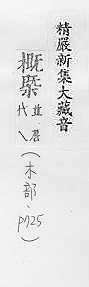 精嚴新集大藏音
概槩並居代㇏
(木部、p125)